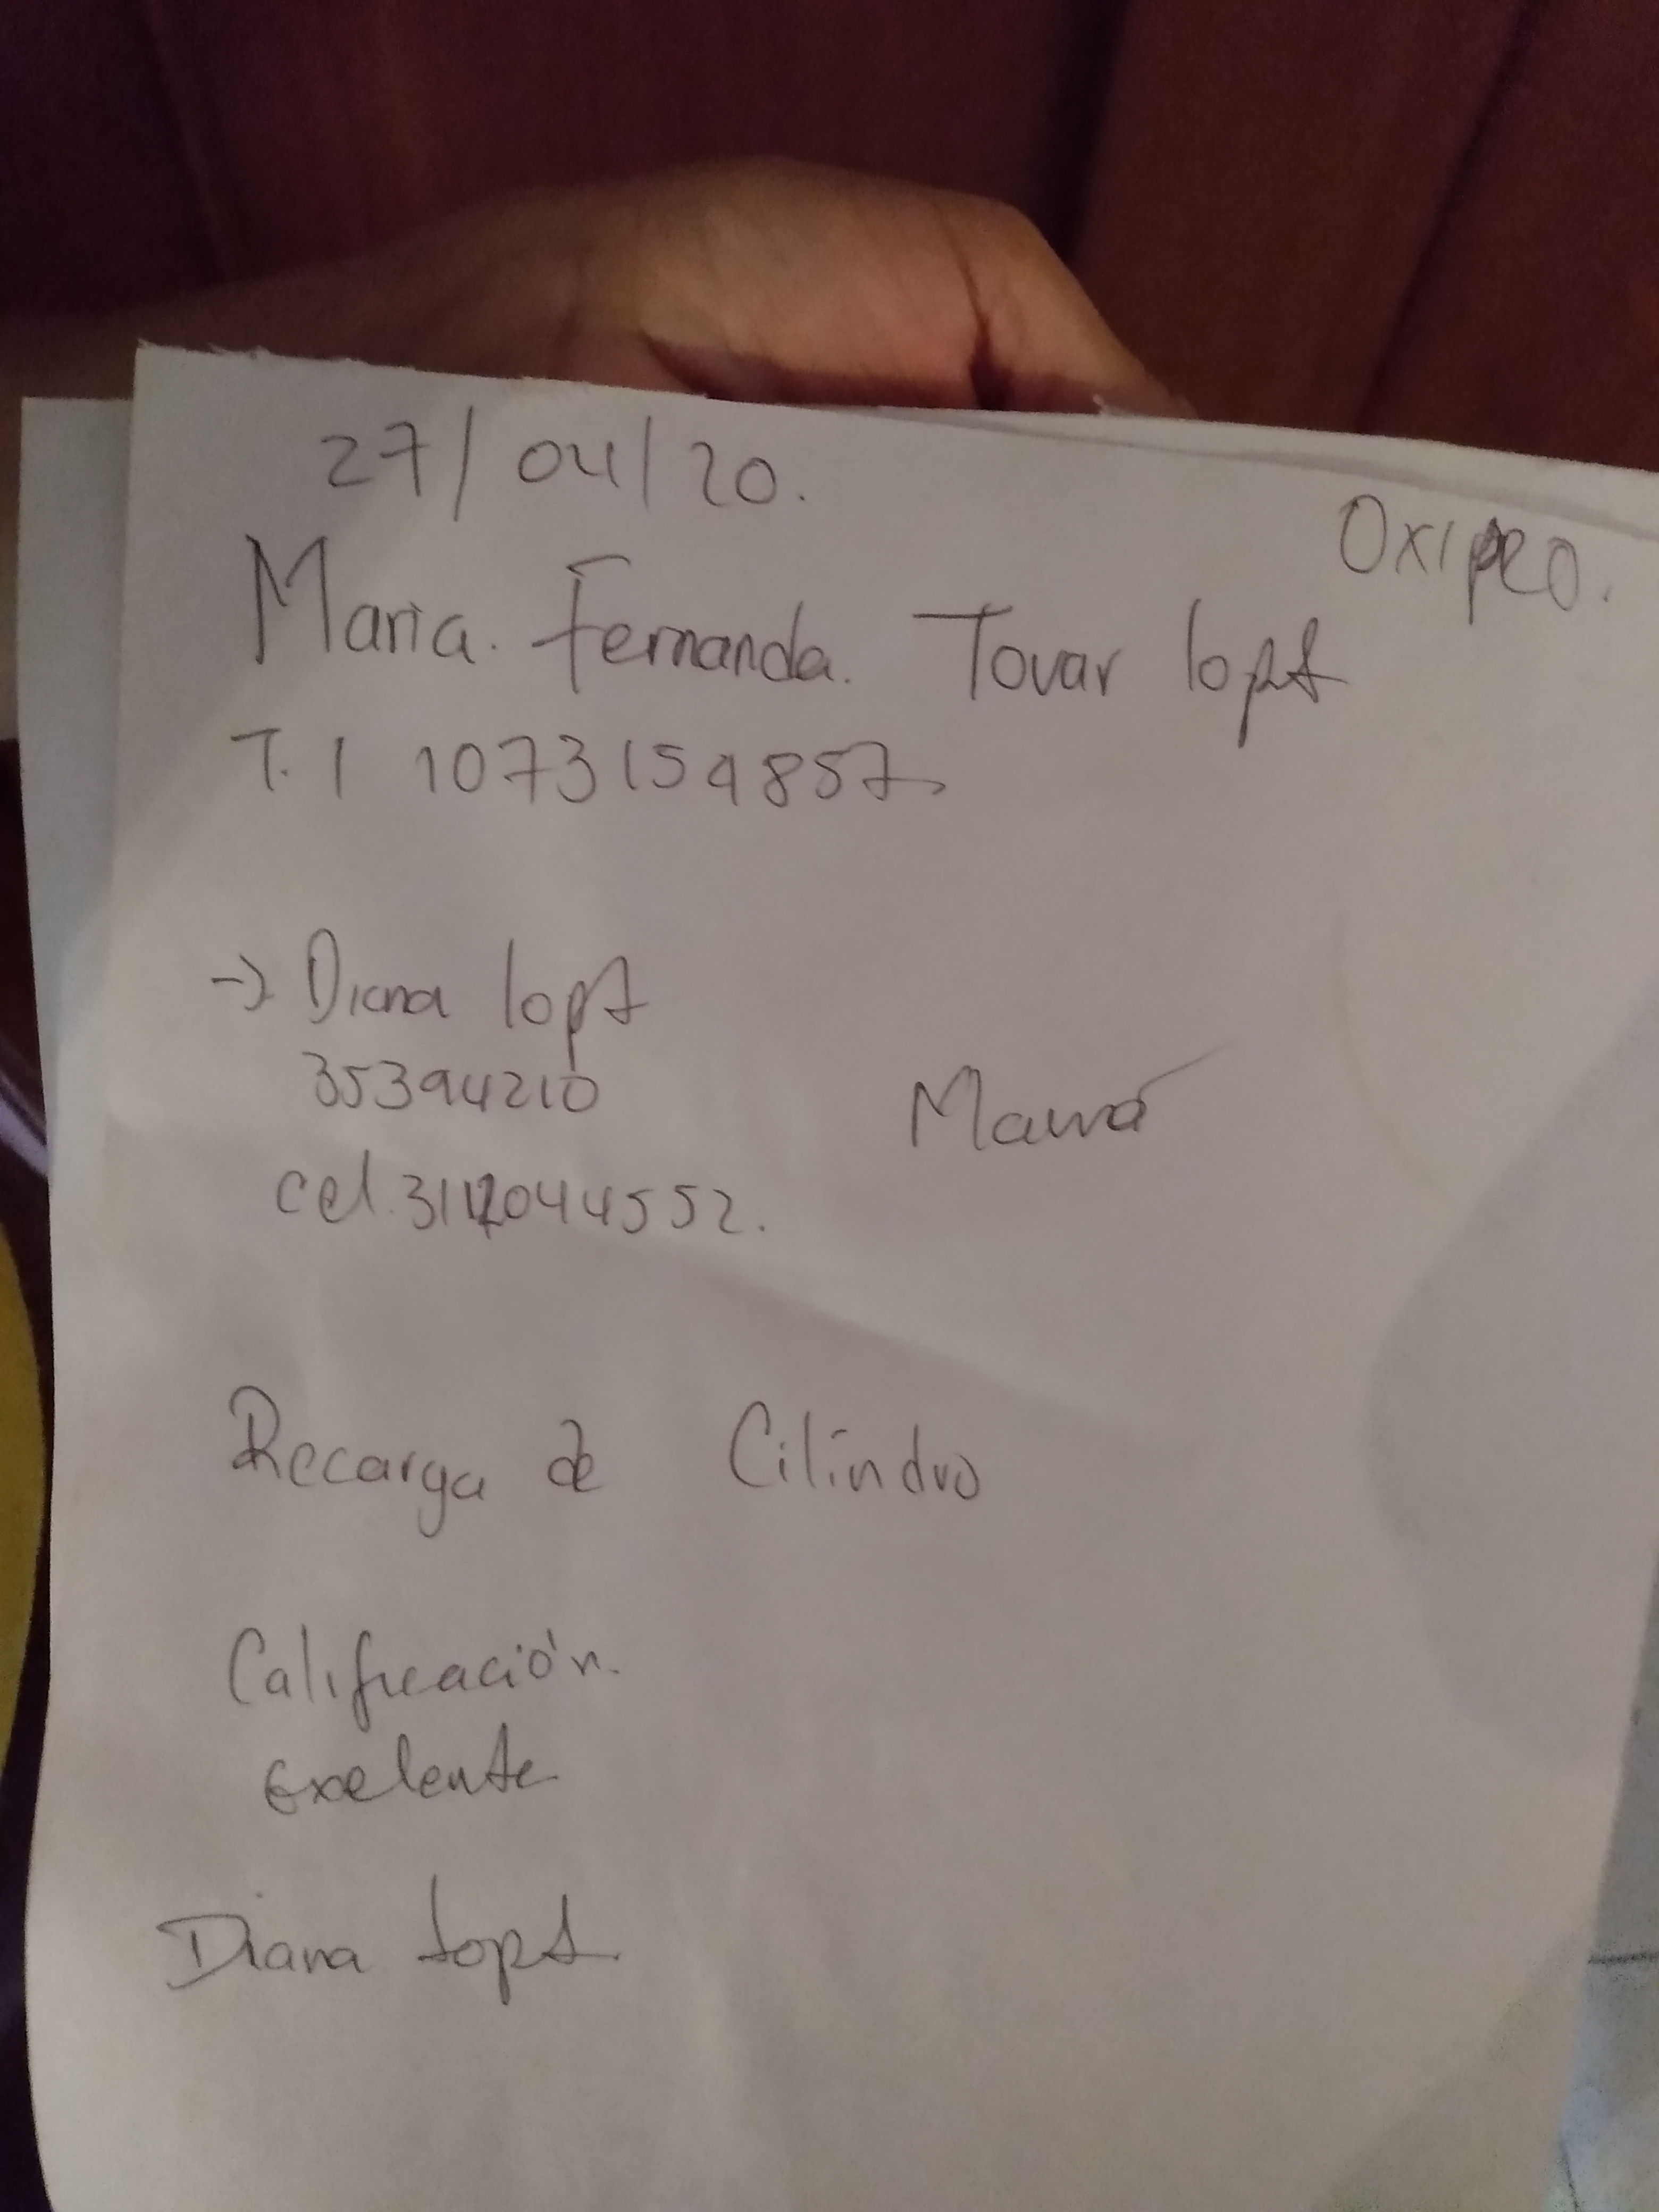 27/04/20.
OXIPRO.
Maria. Fernanda. Tovar lopez
T. I 1073154857
→ Diana lopez
35394210
Mamá
cel. 3112044552.
Recarga de Cilindro
Calificación.
Exelente
Diana Lopez